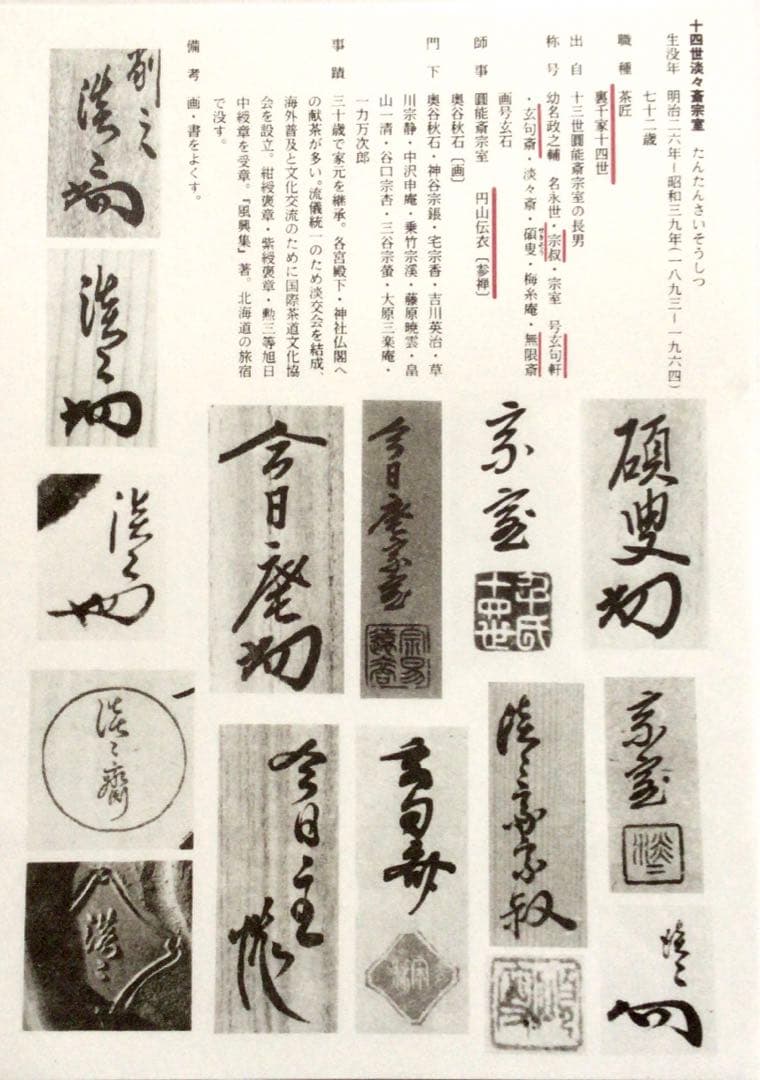 十四世淡々斎宗室 たんたんさいそうしつ
生没年 明治二六年ー昭和三九年(一八九三ー一九六四)
七十二歳
職種 茶匠
裏千家十四世
出自 十三世圓能斎宗室の長男
称号 幼名政之輔 名永世・宗叔・宗室 号玄句軒
・玄句斎・淡々斎・碩叟・梅糸庵・無限斎
せきそう
画号玄石
師事 圓能斎宗室 円山伝衣〔参禅〕
奥谷秋石〔画〕
門下 奥谷秋石・神谷宗䤹・宅宗香・吉川英治・草
川宗静・中沢申庵・乗竹宗溪・藤原暁雲・畠
山一清・谷口宗杏・三谷宗螢・大原三楽庵・
一力万次郎
事蹟 三十歳で家元を継承。各宮殿下・神社仏閣へ
の献茶が多い。流儀統一のため淡交会を結成、
海外普及と文化交流のために国際茶道文化協
会を設立。紺綬褒章・紫綬褒章・勲三等旭日
中綬章を受章。『風興集』著。北海道の旅宿
で没す。
備考 画・書をよくす。
碩叟
宗室
十四世
今日庵宗室
今日庵
削之
淡々
淡々
淡々
宗室
淡々斎宗叔
玄句斎
今日主
淡々斎
淡々
淡々